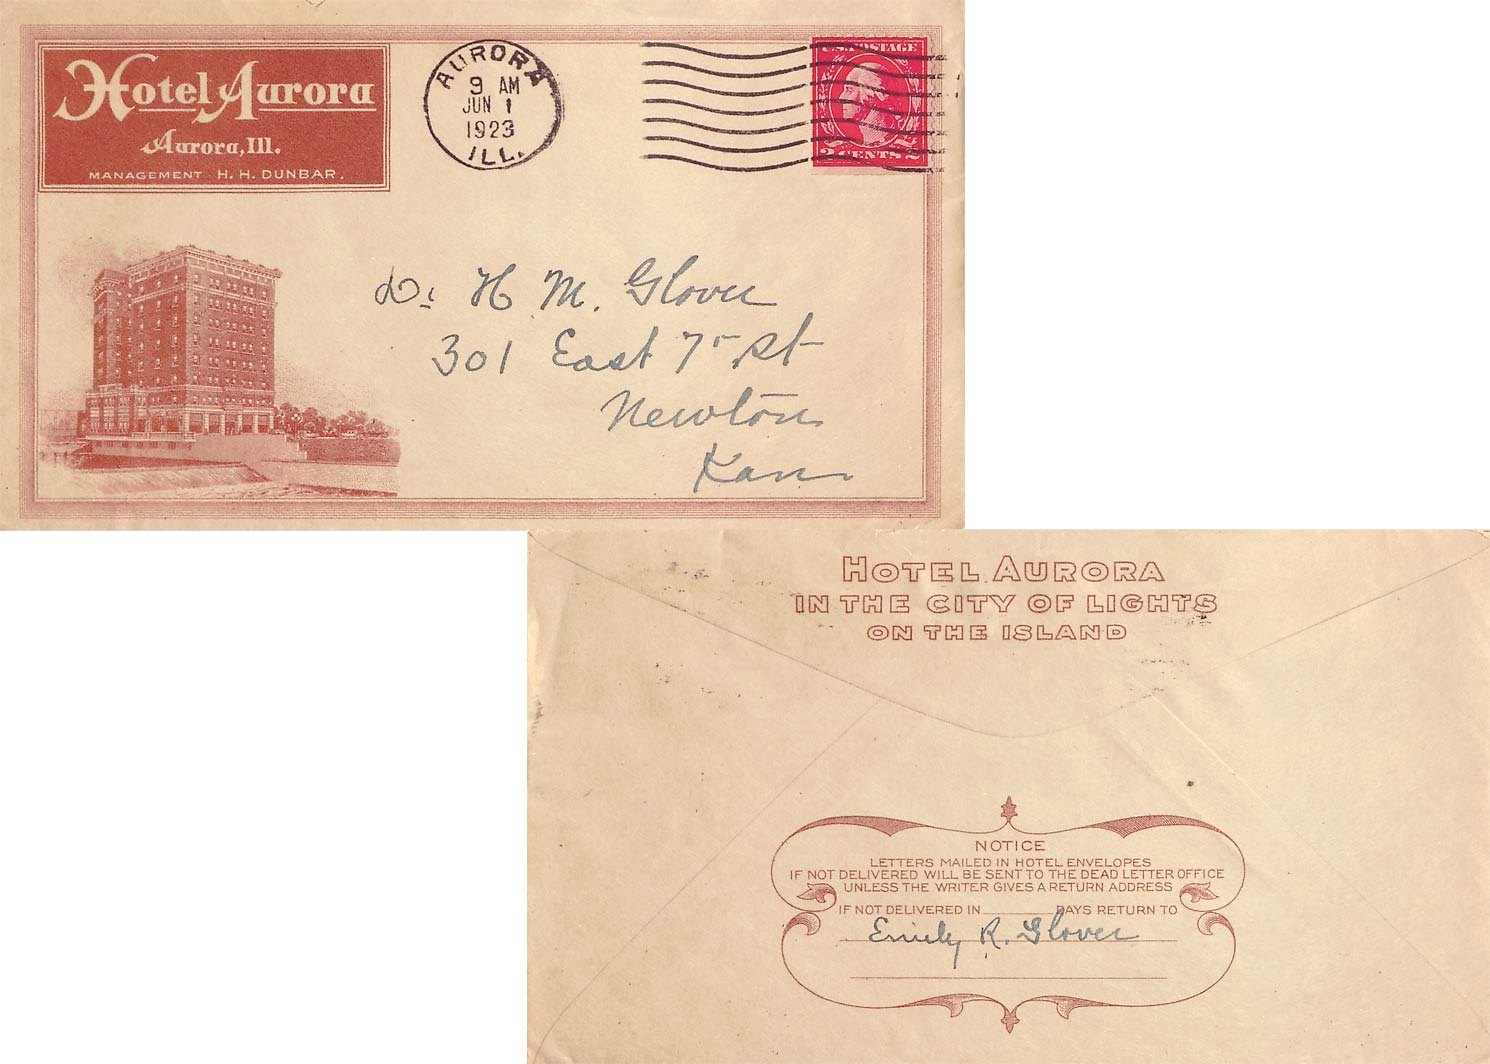 Hotel Aurora
Aurora, Ill.
MANAGEMENT H. H. DUNBAR.
AURORA
9 AM
JUN 1
1923
ILL.
U.S. POSTAGE
2 CENTS 2
Dr H. M. Glover
301 East 7th St
Newton
Kans
HOTEL AURORA
IN THE CITY OF LIGHTS
ON THE ISLAND
NOTICE
LETTERS MAILED IN HOTEL ENVELOPES
IF NOT DELIVERED WILL BE SENT TO THE DEAD LETTER OFFICE
UNLESS THE WRITER GIVES A RETURN ADDRESS
IF NOT DELIVERED IN ________ DAYS RETURN TO
Emily R. Glover